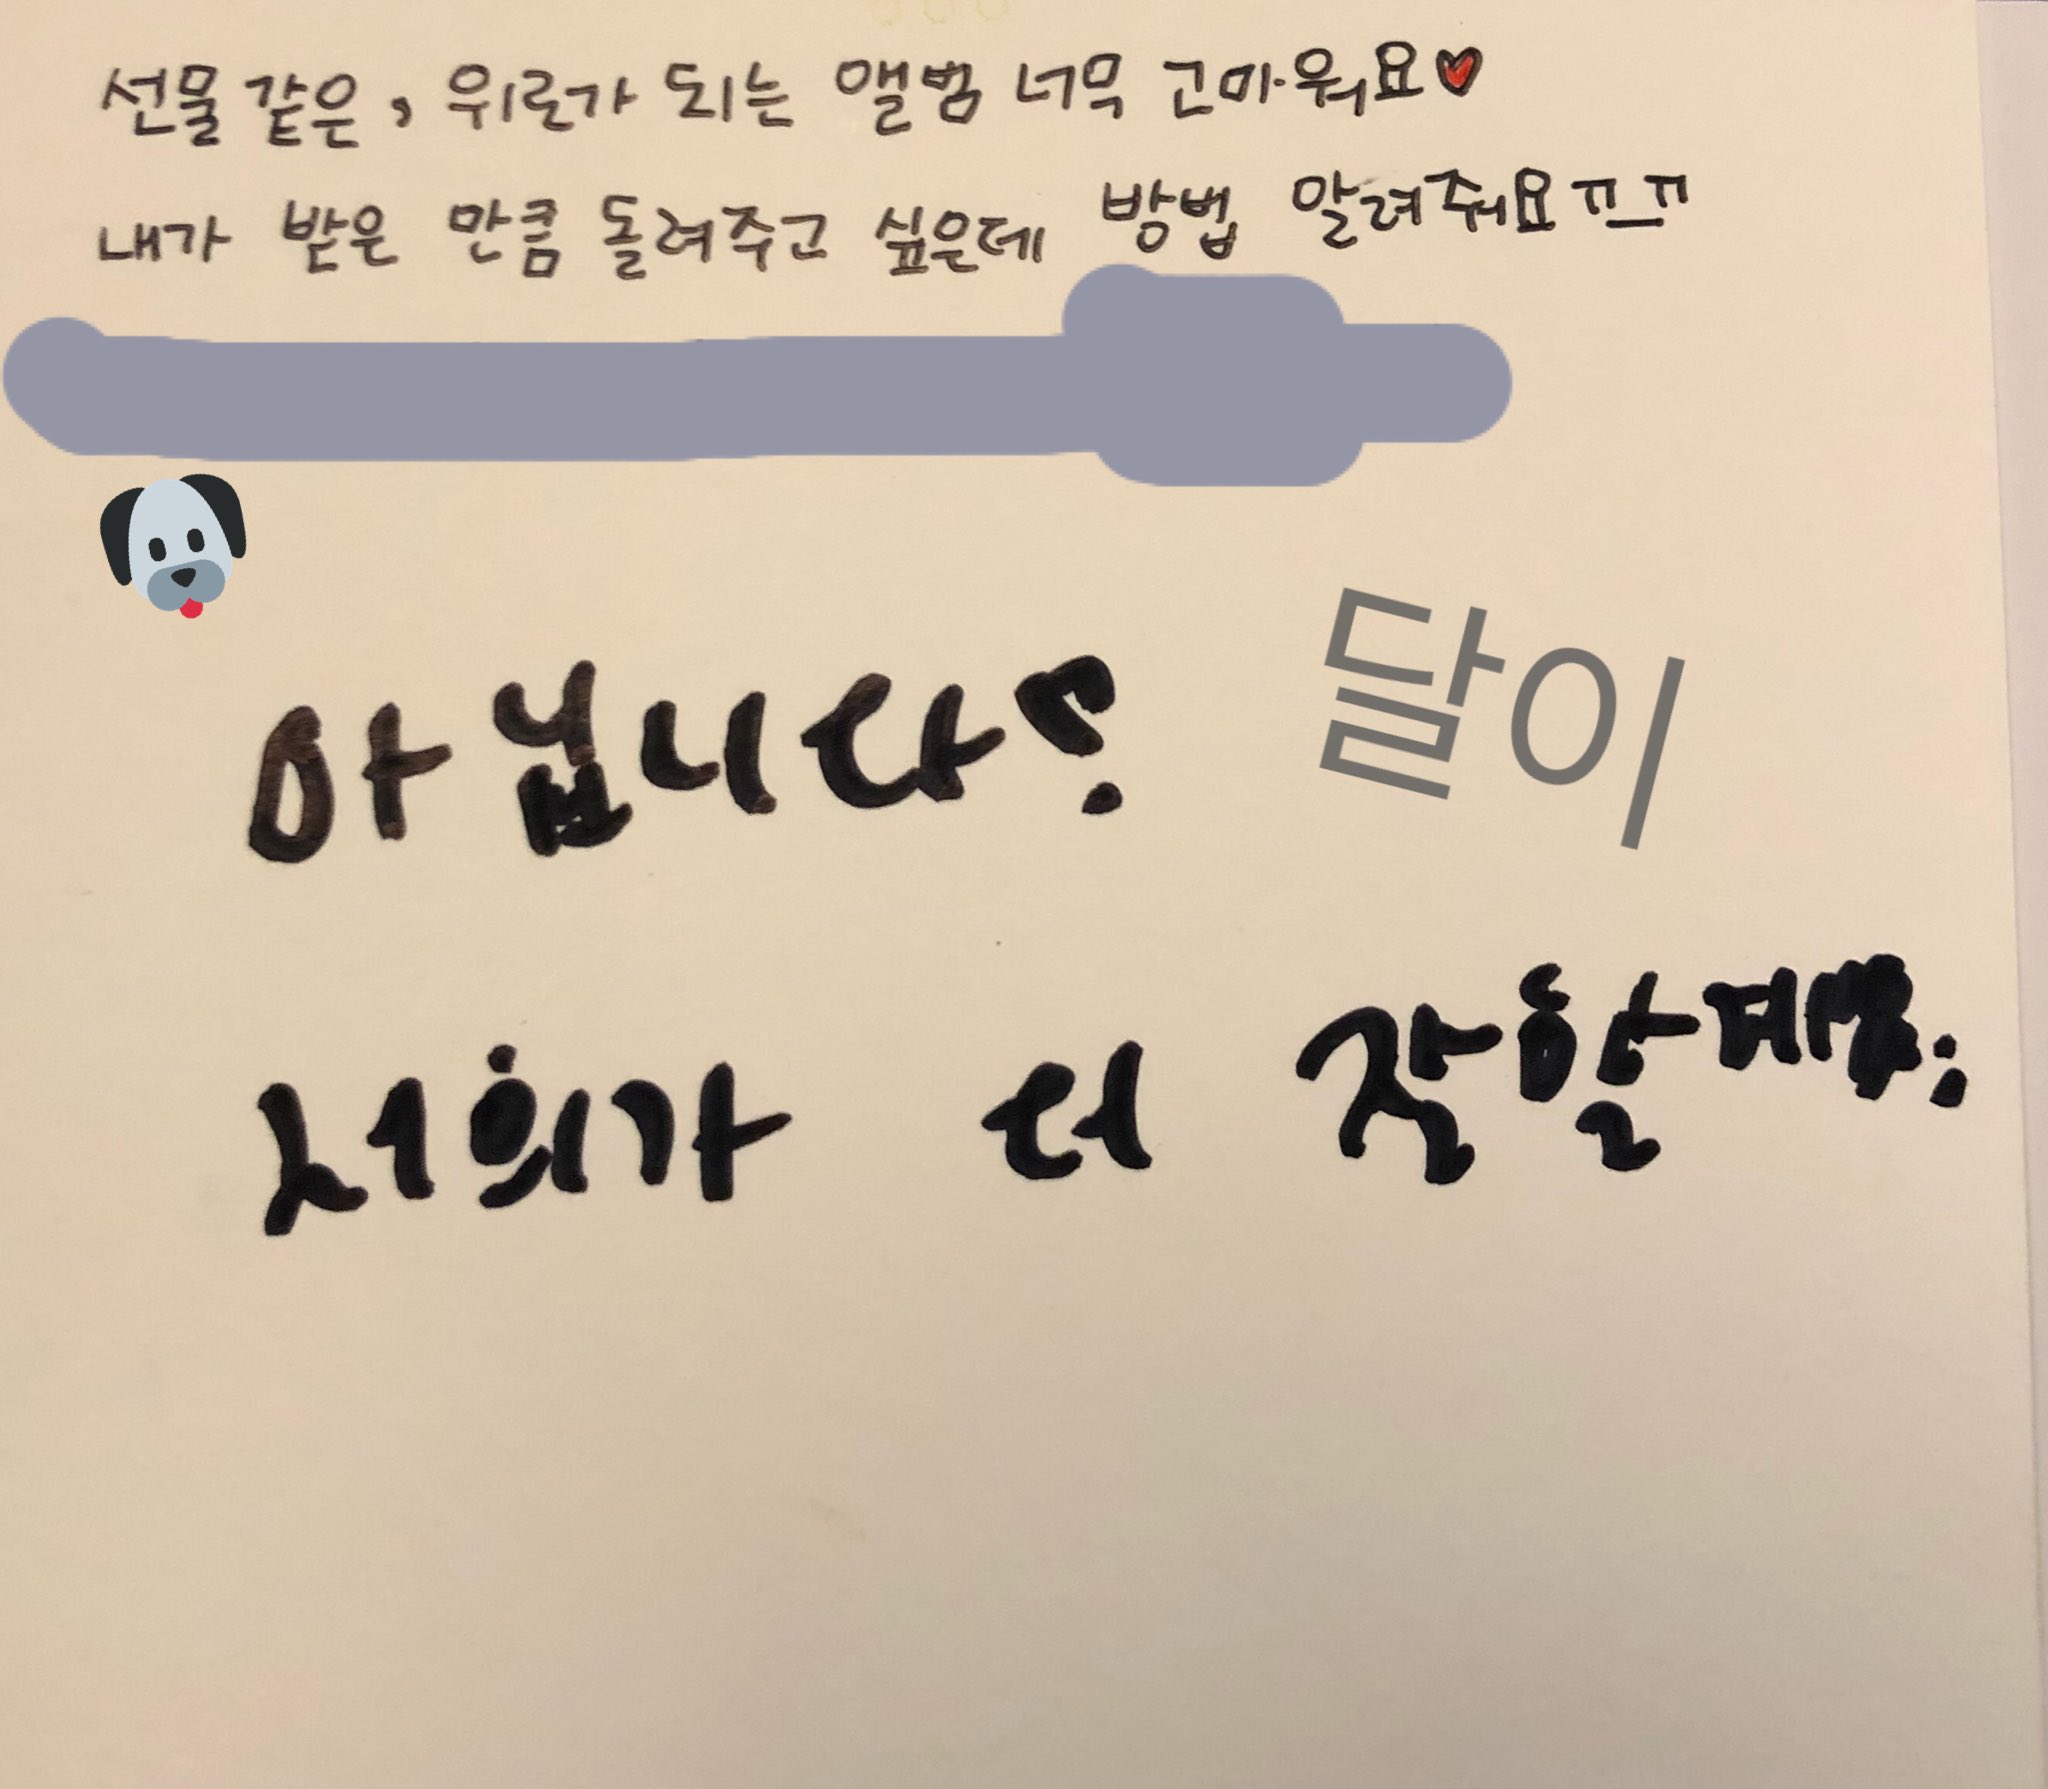 선물 같은, 위로가 되는 앨범 너무 고마워요♥
내가 받은 만큼 돌려주고 싶은데 방법 알려줘요ㄲㅡㄲ
아닙니다? 달이
저희가 더 잘할게요;